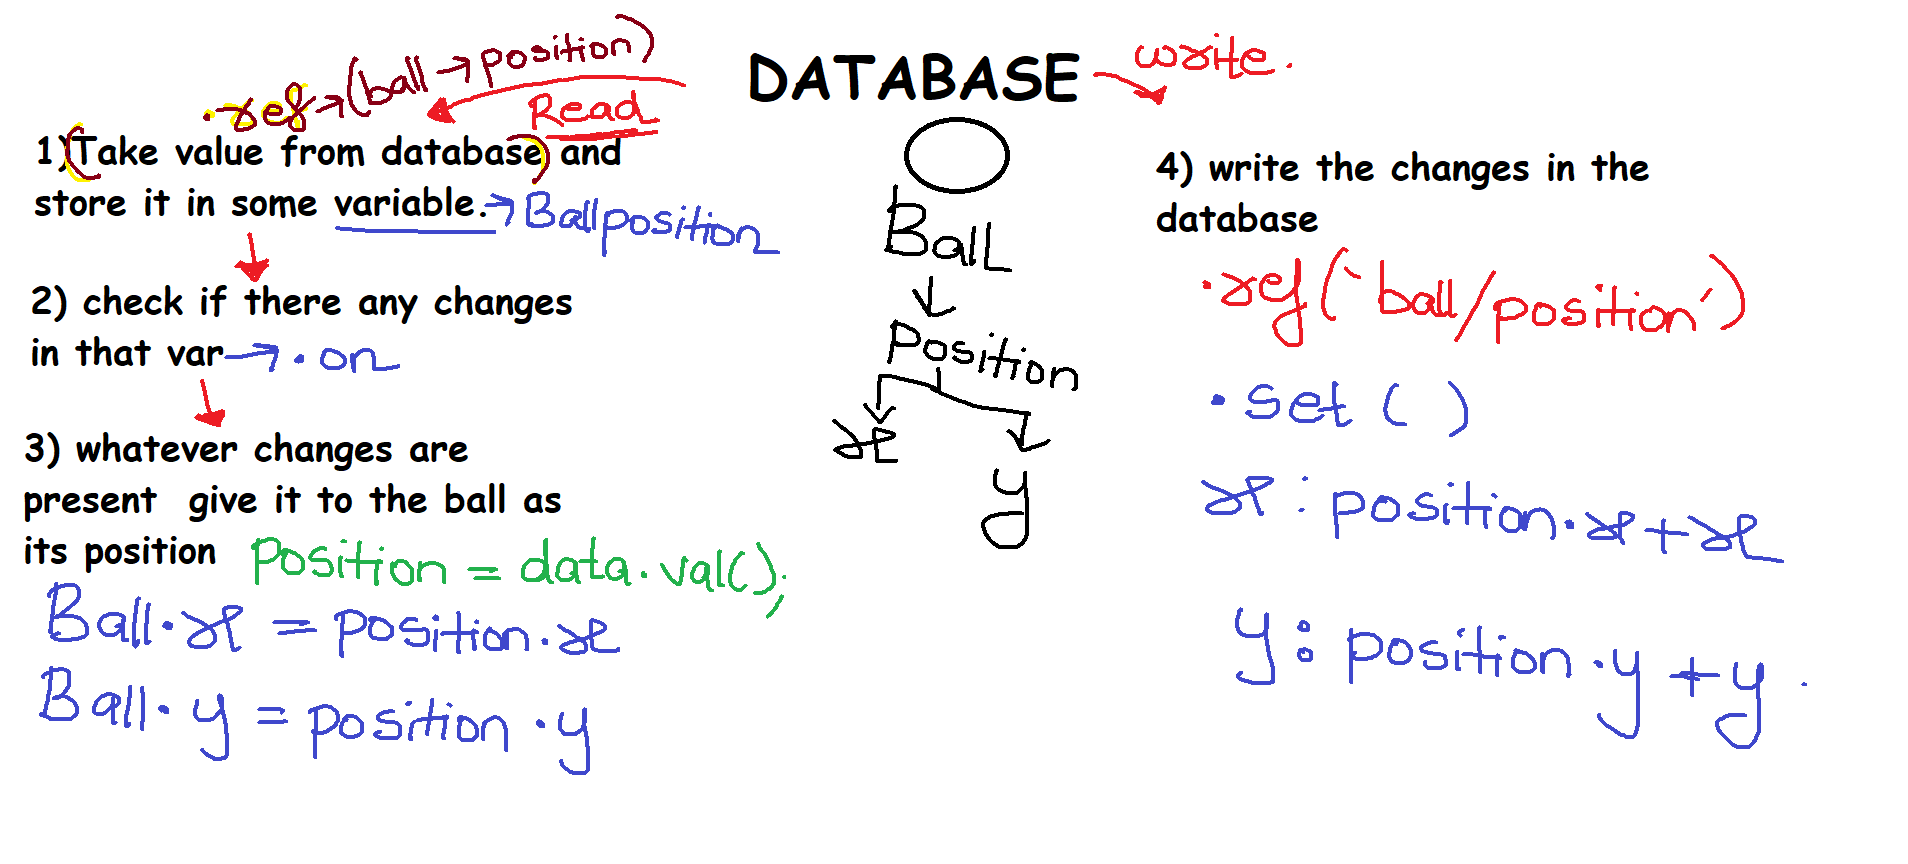 DATABASE
write.
.ref→(ball→position)
Read
1)(Take value from database) and
store it in some variable.→Ballposition
2) check if there any changes
in that var→.on
3) whatever changes are
present give it to the ball as
its position Position = data.val();
Ball.x = position.x
Ball.y = position.y
Ball
Position
x
y
4) write the changes in the
database
.ref('ball/position')
.set( )
x : position.x+x
y : position.y + y.